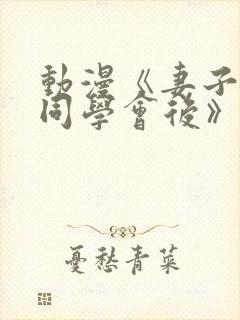 動漫《妻子
同學會後》
憂愁青菜